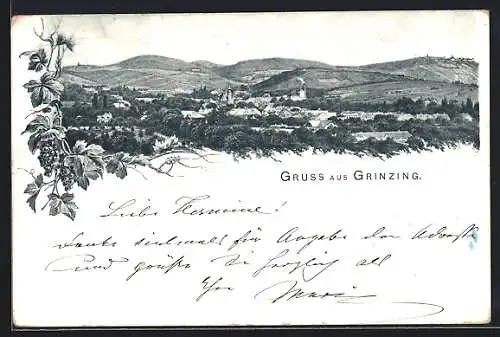 GRUSS AUS GRINZING.
Liebe Hermine!
Danke vielmals für Angabe der Adresse
und grüße Sie herzlich als
Ihre Marie